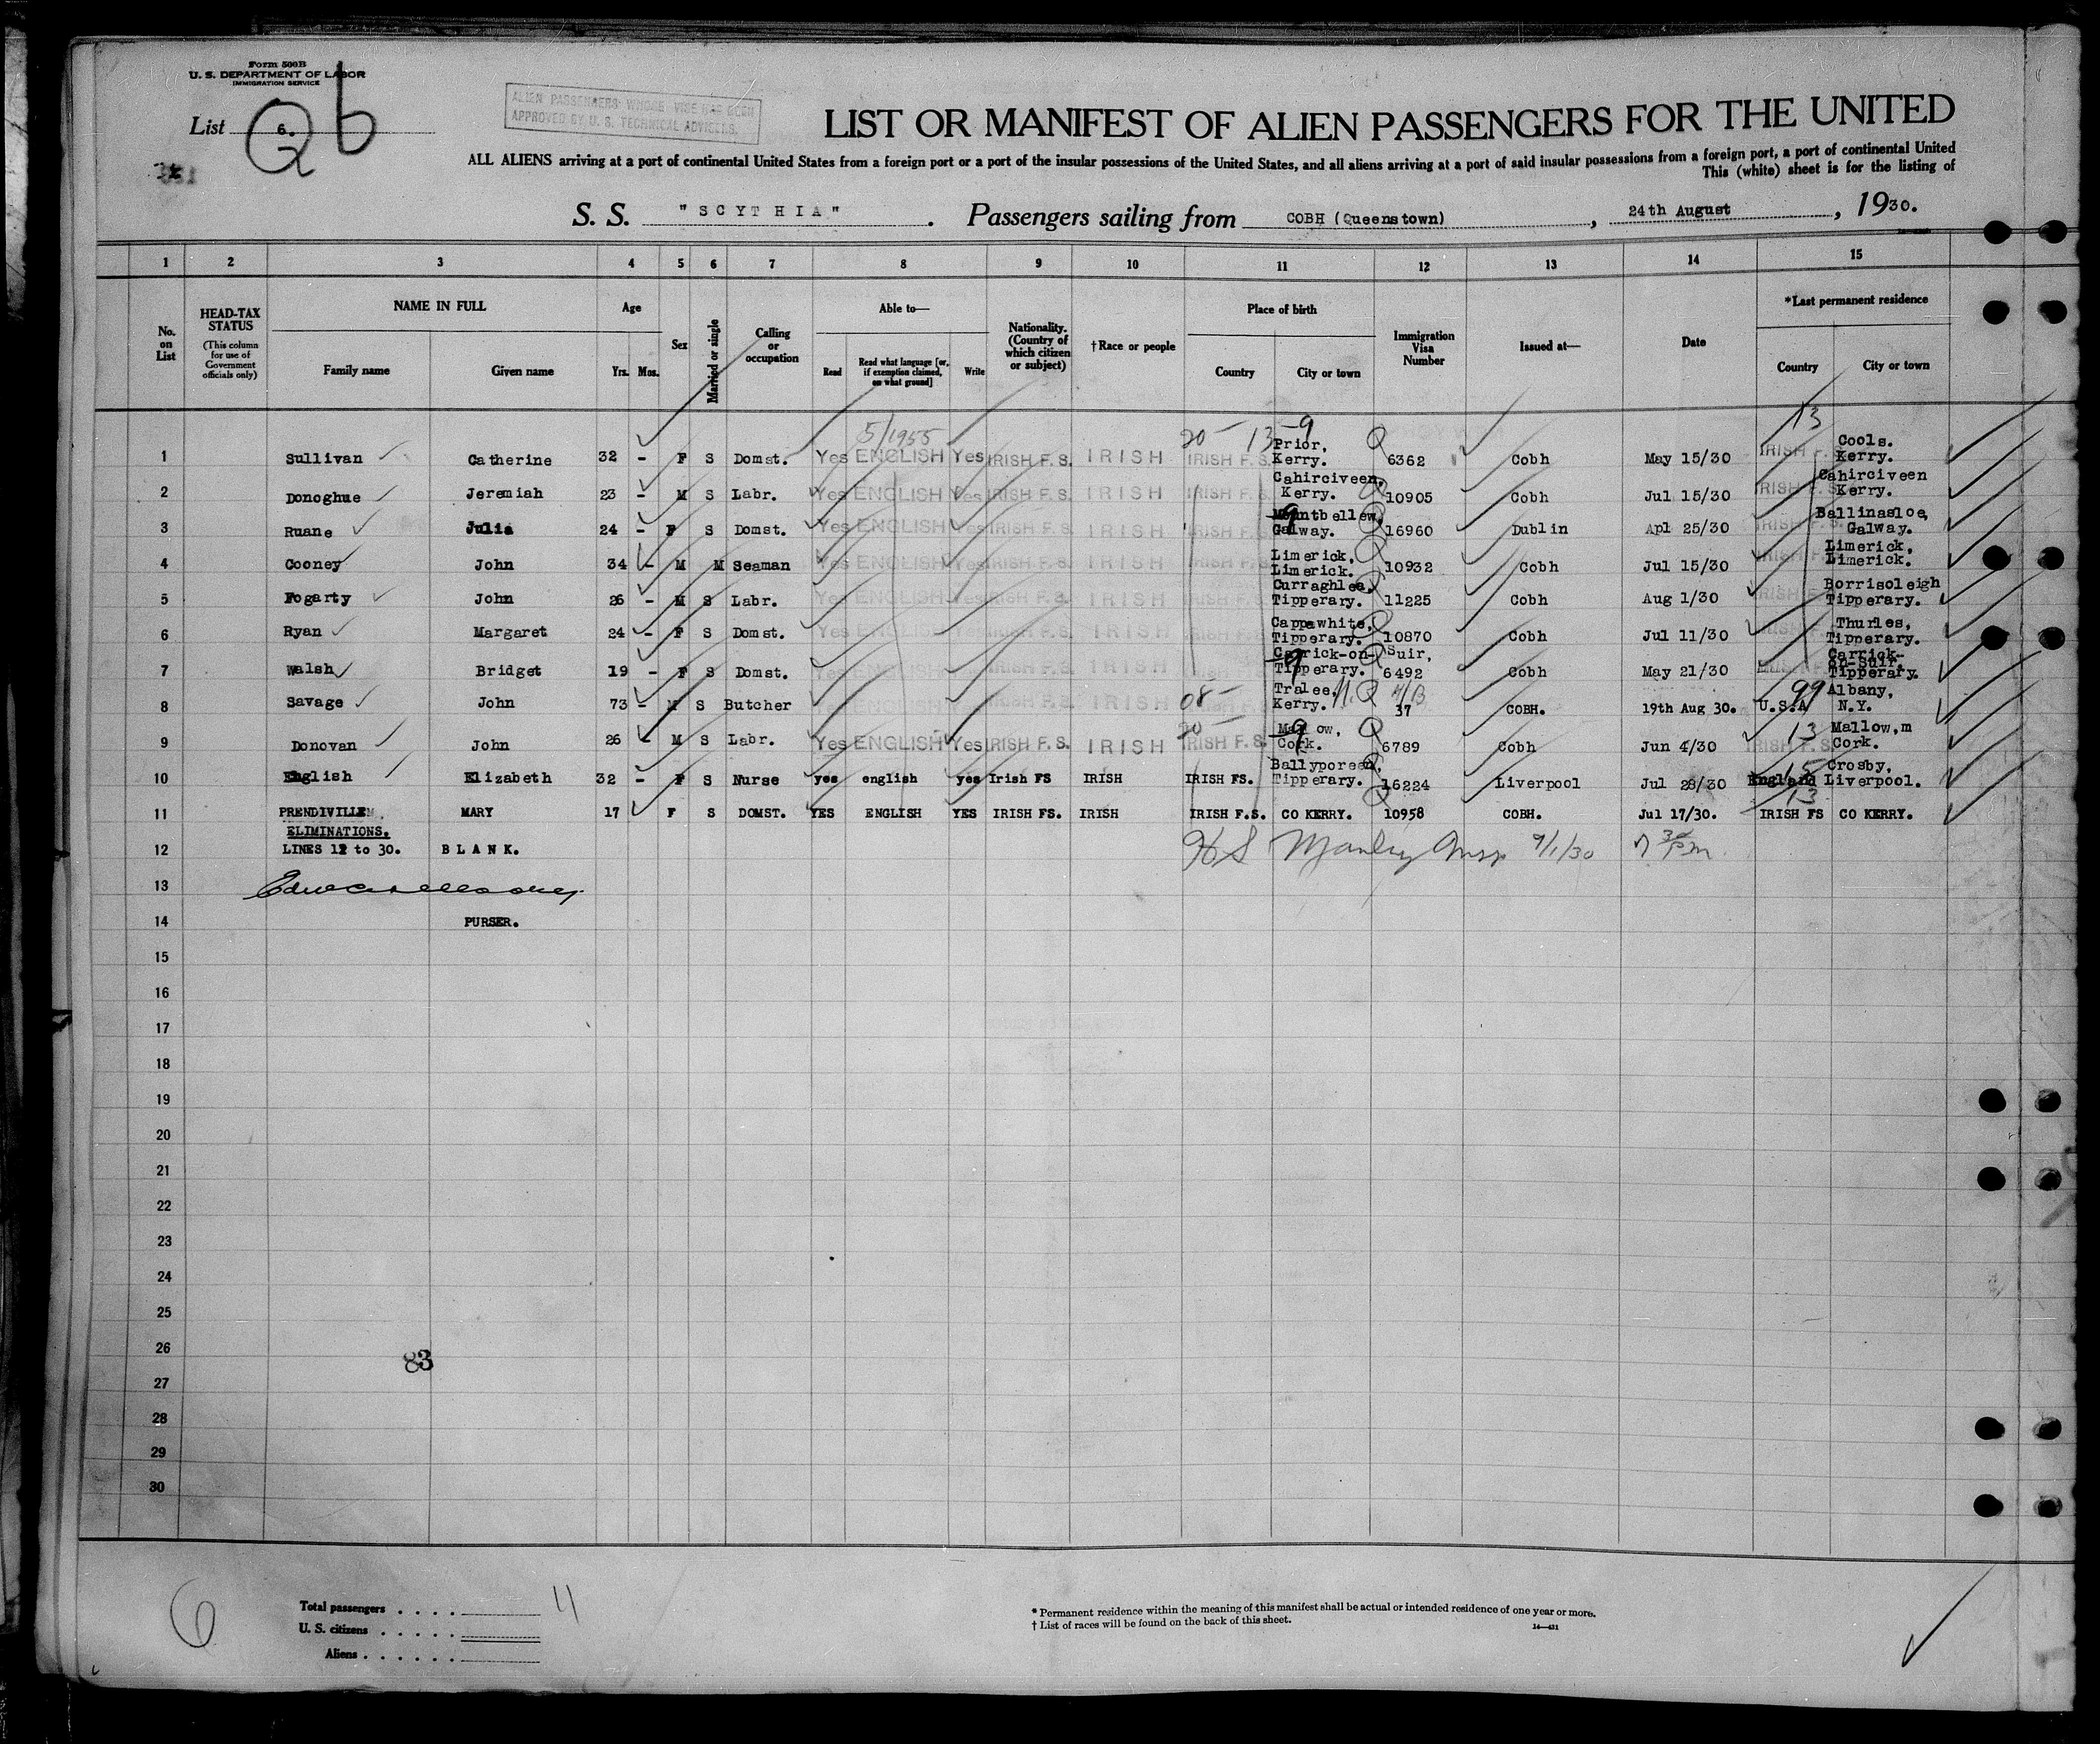 Form 500B
U. S. DEPARTMENT OF LABOR
IMMIGRATION SERVICE
List 6.
Qb
ALIEN PASSENGERS WHOSE VISE HAS BEEN
APPROVED BY U. S. TECHNICAL ADVISERS.
LIST OR MANIFEST OF ALIEN PASSENGERS FOR THE UNITED
ALL ALIENS arriving at a port of continental United States from a foreign port or a port of the insular possessions of the United States, and all aliens arriving at a port of said insular possessions from a foreign port, a port of continental United
This (white) sheet is for the listing of
S. S. "SCYTHIA". Passengers sailing from COBH (Queenstown), 24th August, 1930.
1 2 3 4 5 6 7 8 9 10 11 12 13 14 15
No. on List
HEAD-TAX STATUS (This column for use of Government officials only)
NAME IN FULL Family name Given name
Age Yrs. Mos.
Sex
Married or single
Calling or occupation
Able to— Read Read what language [or, if exemption claimed, on what ground] Write
Nationality. (Country of which citizen or subject)
†Race or people
Place of birth Country City or town
Immigration Visa Number
Issued at—
Date
*Last permanent residence Country City or town
5/1955 20 - 13 -9 13
1 Sullivan Catherine 32 - F S Domst. Yes ENGLISH Yes IRISH F.S. IRISH IRISH F.S. Prior, Kerry. 6362 Cobh May 15/30 IRISH F.S. Cools. Kerry.
2 Donoghue Jeremiah 23 - M S Labr. Yes ENGLISH Yes IRISH F.S. IRISH IRISH F.S. Cahirciveen, Kerry. 10905 Cobh Jul 15/30 IRISH F.S. Cahirciveen Kerry.
3 Ruane Julia 24 - F S Domst. Yes ENGLISH Yes IRISH F.S. IRISH IRISH F.S. Mountbellew, Galway. 9 16960 Dublin Apl 25/30 IRISH F.S. Ballinasloe, Galway.
4 Cooney John 34 - M M Seaman Yes ENGLISH Yes IRISH F.S. IRISH IRISH F.S. Limerick, Limerick. 10932 Cobh Jul 15/30 IRISH F.S. Limerick, Limerick.
5 Fogarty John 26 - M S Labr. Yes ENGLISH Yes IRISH F.S. IRISH IRISH F.S. Curraghlea, Tipperary. 11225 Cobh Aug 1/30 IRISH F.S. Borrisoleigh Tipperary.
6 Ryan Margaret 24 - F S Domst. Yes ENGLISH Yes IRISH F.S. IRISH IRISH F.S. Cappawhite, Tipperary. 10870 Cobh Jul 11/30 IRISH F.S. Thurles, Tipperary.
7 Walsh Bridget 19 - F S Domst. Yes ENGLISH Yes IRISH F.S. IRISH IRISH F.S. Carrick-on-Suir, Tipperary. 9 6492 Cobh May 21/30 IRISH F.S. Carrick-on-Suir, Tipperary.
8 Savage John 73 - M S Butcher Yes ENGLISH Yes IRISH F.S. IRISH 08 - Tralee, Kerry. 37 COBH. 19th Aug 30. U.S.A 99 Albany, N.Y.
9 Donovan John 26 - M S Labr. Yes ENGLISH Yes IRISH F.S. IRISH 20 - IRISH F.S. Mallow, Cork. 9 6789 Cobh Jun 4/30 IRISH F.S. 13 Mallow,m Cork.
10 English Elizabeth 32 - F S Nurse yes english yes Irish FS IRISH IRISH FS. Ballyporeen, Tipperary. 16224 Liverpool Jul 28/30 England 15 Crosby, Liverpool.
11 PRENDIVILLE MARY 17 F S DOMST. YES ENGLISH YES IRISH FS. IRISH IRISH F.S. CO KERRY. 10958 COBH. Jul 17/30. IRISH FS 13 CO KERRY.
ELIMINATIONS.
12 LINES 12 to 30. BLANK. 9/1/30
13
14 PURSER.
15
16
17
18
19
20
21
22
23
24
25
26
83
27
28
29
30
6
Total passengers . . . . 11
U. S. citizens . . . . .
Aliens . . . . . .
* Permanent residence within the meaning of this manifest shall be actual or intended residence of one year or more.
† List of races will be found on the back of this sheet.
14—431